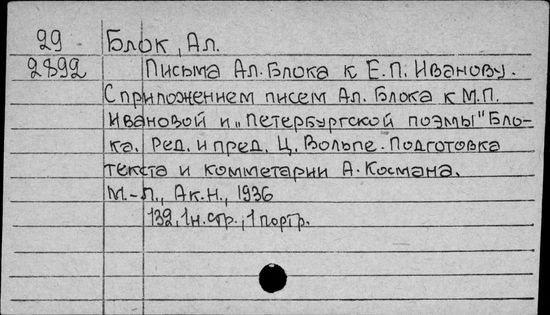 29 Блок, Ал.
2892 Письма Ал. Блока к Е.П. Иванову.
С приложением писем Ал. Блока к М.П.
Ивановой и „Петербургской поэмы" Бло-
ка. Ред. и пред. Ц. Вольпе. Подготовка
текста и комметарии А. Космана.
М.-Л., Ак.Н., 1936
132, 1 н. стр., 1 портр.